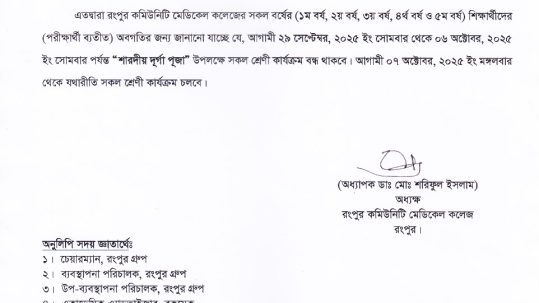 এতদ্বারা রংপুর কমিউনিটি মেডিকেল কলেজের সকল বর্ষের (১ম বর্ষ, ২য় বর্ষ, ৩য় বর্ষ, ৪র্থ বর্ষ ও ৫ম বর্ষ) শিক্ষার্থীদের
(পরীক্ষার্থী ব্যতীত) অবগতির জন্য জানানো যাচ্ছে যে, আগামী ২৯ সেপ্টেম্বর, ২০২৫ ইং সোমবার থেকে ০৬ অক্টোবর, ২০২৫
ইং সোমবার পর্যন্ত “শারদীয় দূর্গা পূজা” উপলক্ষে সকল শ্রেণী কার্যক্রম বন্ধ থাকবে। আগামী ০৭ অক্টোবর, ২০২৫ ইং মঙ্গলবার
থেকে যথারীতি সকল শ্রেণী কার্যক্রম চলবে।
(অধ্যাপক ডাঃ মোঃ শরিফুল ইসলাম)
অধ্যক্ষ
রংপুর কমিউনিটি মেডিকেল কলেজ
রংপুর।
অনুলিপি সদয় জ্ঞাতার্থেঃ
১। চেয়ারম্যান, রংপুর গ্রুপ
২। ব্যবস্থাপনা পরিচালক, রংপুর গ্রুপ
৩। উপ-ব্যবস্থাপনা পরিচালক, রংপুর গ্রুপ